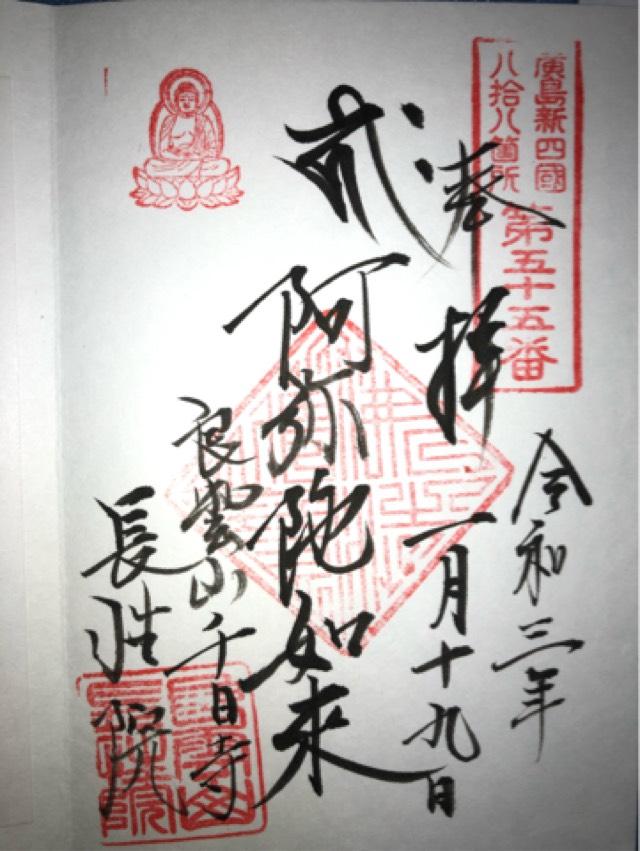 廣島新四國
八拾八箇所
第五十五番
奉拝
令和三年
一月十九日
阿弥陀如來
良雲山千日寺
長性院